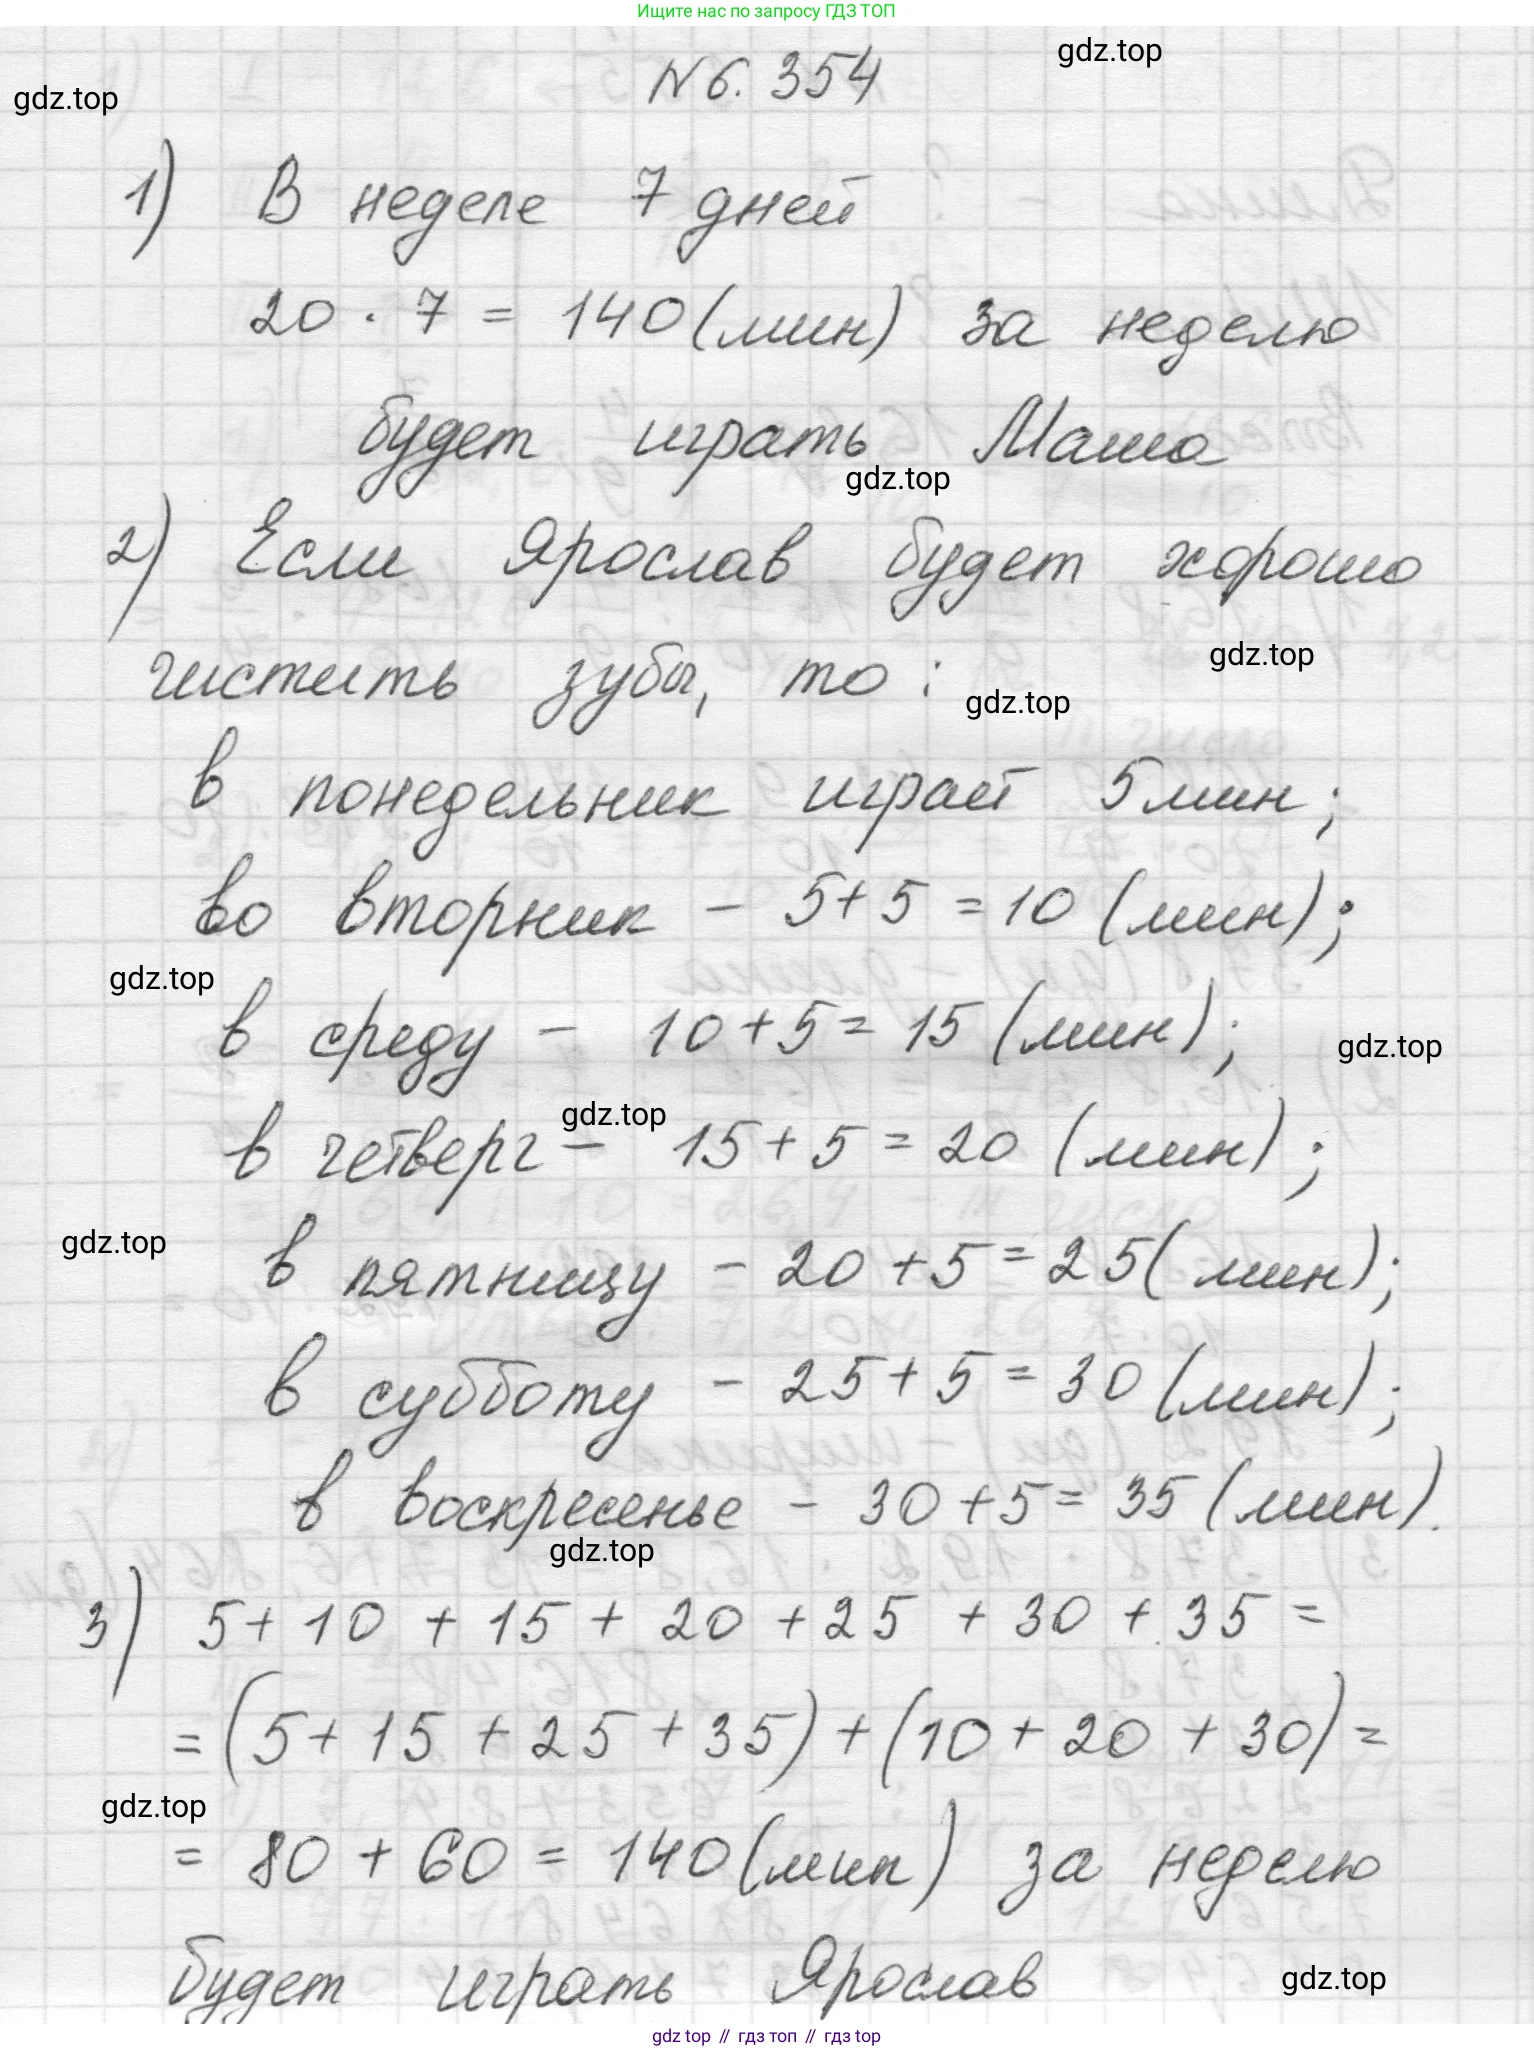 Ищите нас по запросу ГДЗ ТОП
gdz.top
N 6. 354
gdz.top
1) В неделе 7 дней
20 · 7 = 140 (мин) за неделю
будет играть Маша
gdz.top
2) Если Ярослав будет хорошо
gdz.top
чистить зубы, то :
gdz.top
в понедельник играет 5 мин;
во вторник - 5 + 5 = 10 (мин);
gdz.top
в среду - 10 + 5 = 15 (мин);
gdz.top
gdz.top
в четверг - 15 + 5 = 20 (мин);
gdz.top
в пятницу - 20 + 5 = 25 (мин);
в субботу - 25 + 5 = 30 (мин);
в воскресенье - 30 + 5 = 35 (мин).
gdz.top
3) 5 + 10 + 15 + 20 + 25 + 30 + 35 =
= (5 + 15 + 25 + 35) + (10 + 20 + 30) =
gdz.top
= 80 + 60 = 140 (мин) за неделю
будет играть Ярослав
gdz.top
gdz top // гдз топ // гдз top